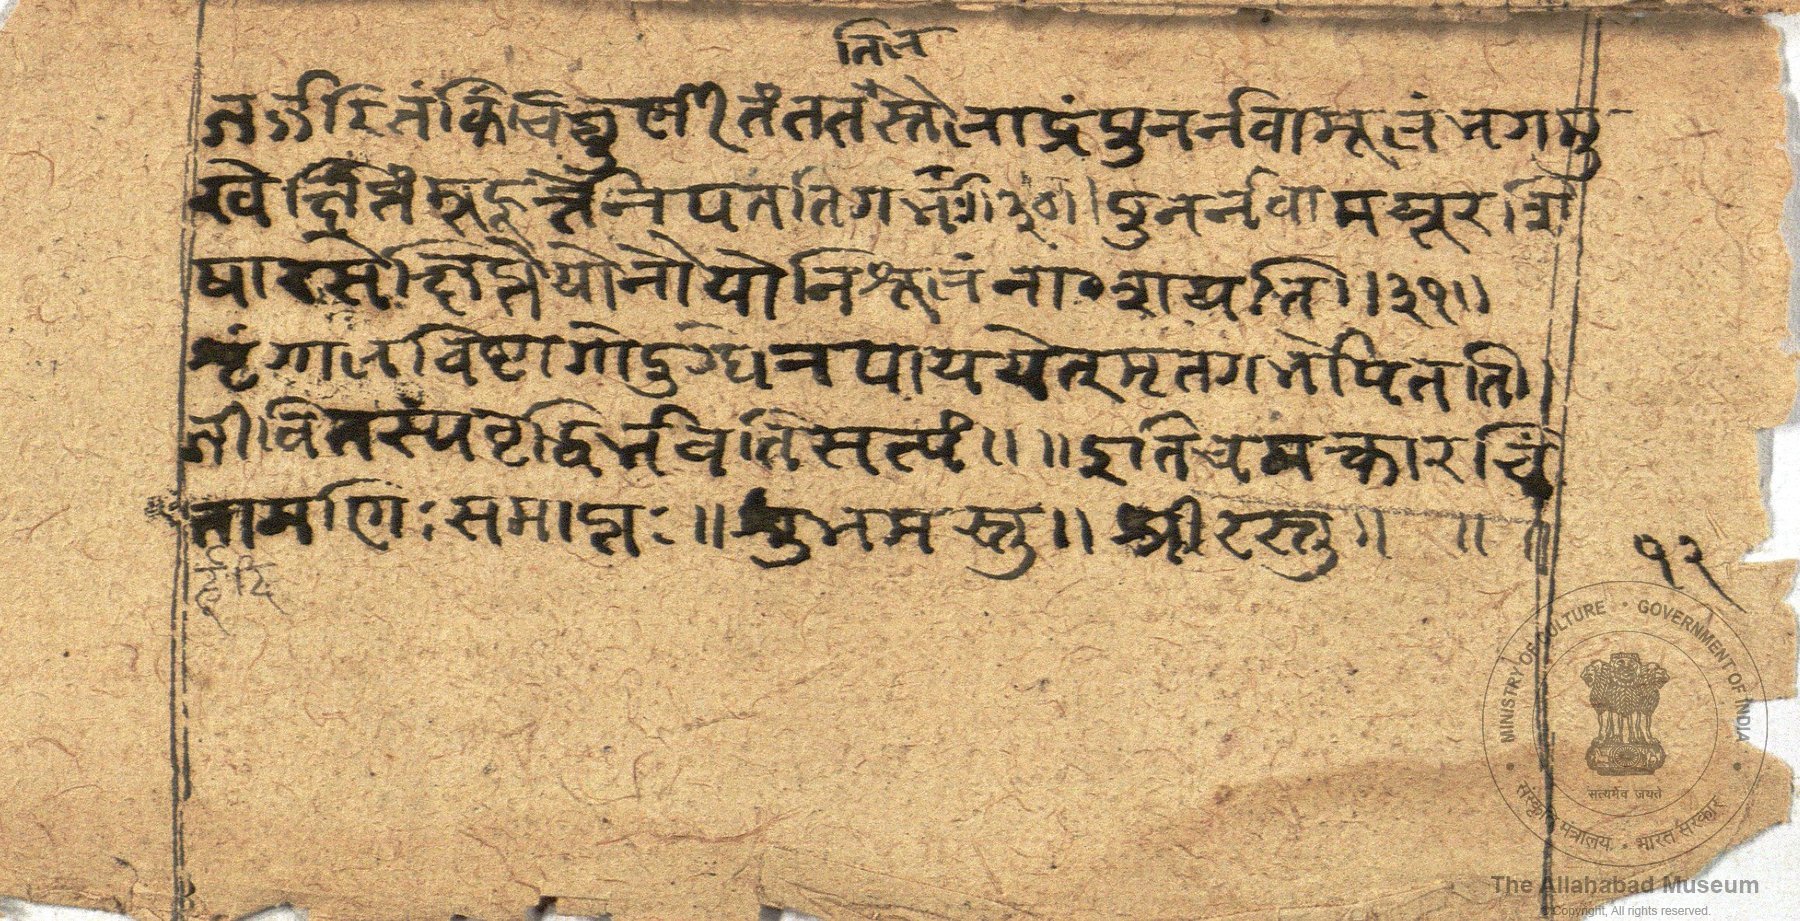 तिल
जर्जरितं किंचिद्घुर्णीरितं ततस्तैलेनार्द्रं पुनर्नवामूलं भगमु
खे क्षिप्तं
पतति गर्भः ॥३०॥ पुनर्नवामयूरशि
षारसे क्षिप्ते योनौ योनिशूलं नाशयति ॥३१॥
शृंगालविष्टा गोदुग्धेन पाययेत् मृतगर्भे पितति
जीवितस्य वृद्धिर्भवति सत्यं ॥ ॥ इति चमत्कारचिं
तामणिः समाप्तः ॥ शुभमस्तु ॥ श्रीरस्तु ॥ ॥ ॥
१२
MINISTRY OF CULTURE • GOVERNMENT OF INDIA
सत्यमेव जयते
संस्कृति मंत्रालय • भारत सरकार
The Allahabad Museum
© Copyright, All rights reserved.